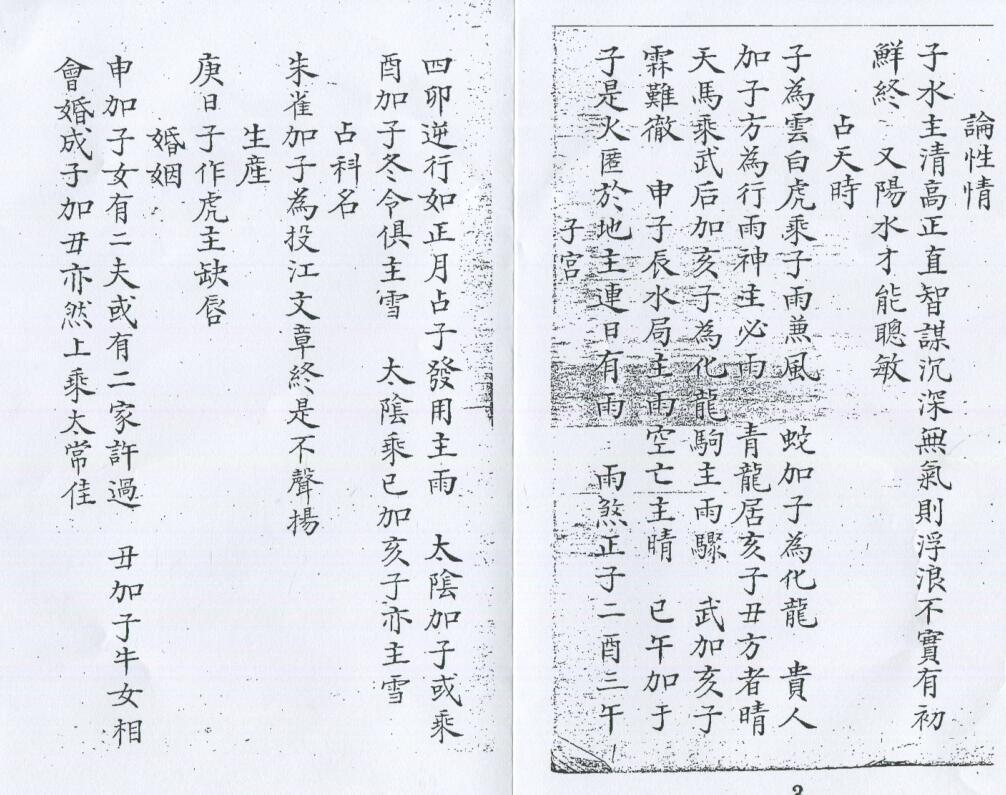 論性情
子水主清高正直智謀沉深無氣則浮浪不實有初
鮮終　又陽水才能聰敏
占天時
子為雲白虎乘子雨兼風　蛟加子為化龍　貴人
加子方為行雨神主必雨　青龍居亥子丑方者晴
天馬乘武后加亥子為化龍駒主雨驟　武加亥子
霖難徹　申子辰水局主雨空亡主晴　巳午加于
子是火匿於地主連日有雨　雨煞正子二酉三午
子宮
四卯逆行如正月占子發用主雨　太陰加子或乘
酉加子冬令俱主雪　太陰乘巳加亥子亦主雪
占科名
朱雀加子為投江文章終是不聲揚
生產
庚日子作虎主缺唇
婚姻
申加子女有二夫或有二家許過　丑加子牛女相
會婚成子加丑亦然上乘太常佳
3